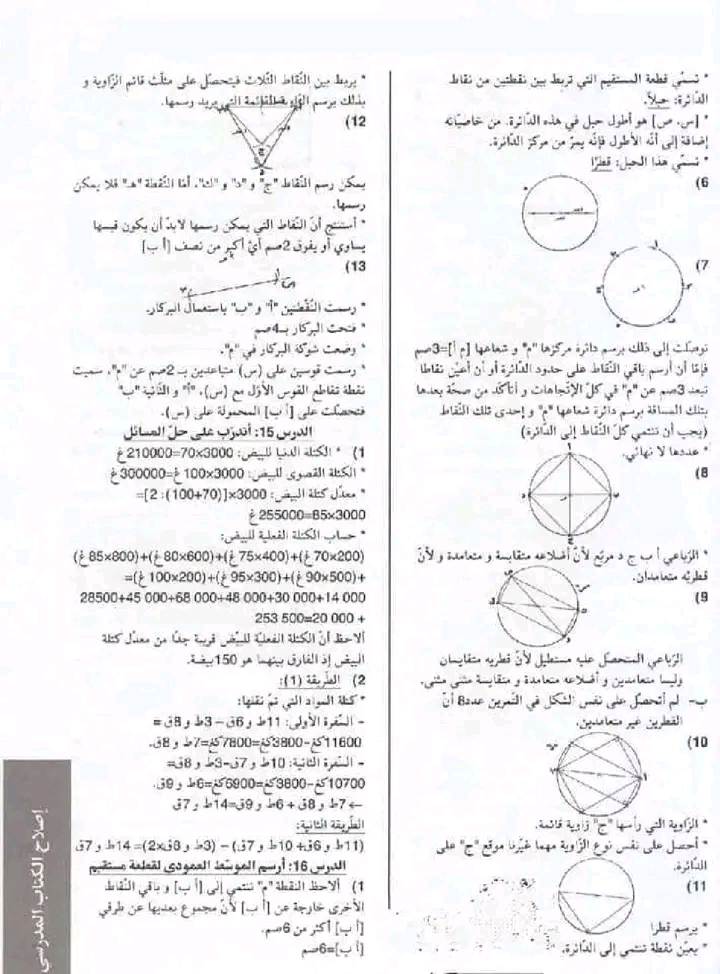 * نسمّي قطعة المستقيم التي تربط بين نقطتين من نقاط
الدّائرة: حبلاً.
* [س، ص] هو أطول حبل في هذه الدّائرة. من خاصيّاته
إضافة إلى أنّه الأطول فإنّه يمرّ من مركز الدّائرة.
* نسمّي هذا الحبل: قطرًا
6)
7)
توصّلت إلى ذلك برسم دائرة مركزها "م" و شعاعها [م أ]=3صم
فإمّا أن أرسم باقي النّقاط على حدود الدّائرة أو أن أعيّن نقاطا
تبعد 3صم عن "م" في كلّ الإتّجاهات و أتأكّد من صحّة بعدها
بتلك المسافة برسم دائرة شعاعها "م" و إحدى تلك النّقاط
(يجب أن تنتمي كلّ النّقاط إلى الدّائرة)
* عددها لا نهائي.
8)
* الرّباعي أ ب ج د مربّع لأنّ أضلاعه متقايسة و متعامدة و لأنّ
قطريه متعامدان.
9)
الرّباعي المتحصّل عليه مستطيل لأنّ قطريه متقايسان
وليسا متعامدين و أضلاعه متعامدة و متقايسة مثنى مثنى.
ب- لم أتحصّل على نفس الشكل في التّمرين عدد8 أنّ
القطرين غير متعامدين.
10)
* الزّاوية التي رأسها "ج" زاوية قائمة.
* أحصل على نفس نوع الزّاوية مهما غيّرنا موقع "ج" على
الدّائرة.
11)
* يرسم قطرا
* يعيّن نقطة تنتمي إلى الدّائرة.
* يربط بين النّقاط الثّلاث فيتحصّل على مثلّث قائم الزّاوية و
بذلك يرسم الزّاوية القائمة التي يريد رسمها.
12)
يمكن رسم النّقاط "ج" و "د" و "ك"، أمّا النّقطة "هـ" فلا يمكن
رسمها.
* أستنتج أنّ النّقاط التي يمكن رسمها لابدّ أن يكون قيسها
يساوي أو يفوق 2صم أيْ أكبر من نصف [أ ب]
13)
* رسمت النّقطتين "أ" و "ب" باستعمال البركار.
* فتحت البركار بـ4صم
* وضعت شوكة البركار في "م".
* رسمت قوسين على (س) متباعدين بـ 2صم عن "م"، سميت
نقطة تقاطع القوس الأوّل مع (س)، "أ" و الثّانية "ب"
فتحصّلت على [أ ب] المحمولة على (س).
الدرس 15: أتدرّب على حلّ المسائل
1) * الكتلة الدنيا للبيض: 3000×70=210000غ
* الكتلة القصوى للبيض: 3000×100غ=300000غ
* معدّل كتلة البيض: 3000×[(70+100) : 2]=
3000×85=255000غ
* حساب الكتلة الفعلية للبيض:
(200×70غ)+(400×75غ)+(600×80غ)+(800×85غ)
+(500×90غ)+(300×95غ)+(200×100غ)=
14 000+30 000+48 000+68 000+45 000+28500
+ 20 000=253 500
ألاحظ أنّ الكتلة الفعليّة للبيْض قريبة جدّا من معدّل كتلة
البيض إذ الفارق بينهما هو 150بيضة.
2) الطّريقة (1):
*كتلة المواد التي تمّ نقلها:
- السّفرة الأولى: 11ط و 6ق -3ط و 8ق =
11600كغ-3800كغ=7800كغ=7ط و 8ق.
- السّفرة الثّانية: 10ط و 7ق-3ط و 8ق=
10700كغ-3800كغ=6900كغ=6ط و 9ق.
← 7ط و 8ق + 6ط و 9ق=14ط و 7ق
الطّريقة الثّانية:
(11ط و 6ق+ 10ط و 7ق) - (3ط و 8ق×2)= 14ط و 7ق
الدرس 16: أرسم الموسّط العمودي لقطعة مستقيم
1) ألاحظ النّقطة "م" تنتمي إلى [أ ب] و باقي النّقاط
الأخرى خارجة عن [أ ب] لأنّ مجموع بعديها عن طرفي
[أ ب] أكثر من 6صم.
[أ ب]=6صم
إصلاح الكتاب المدرسي